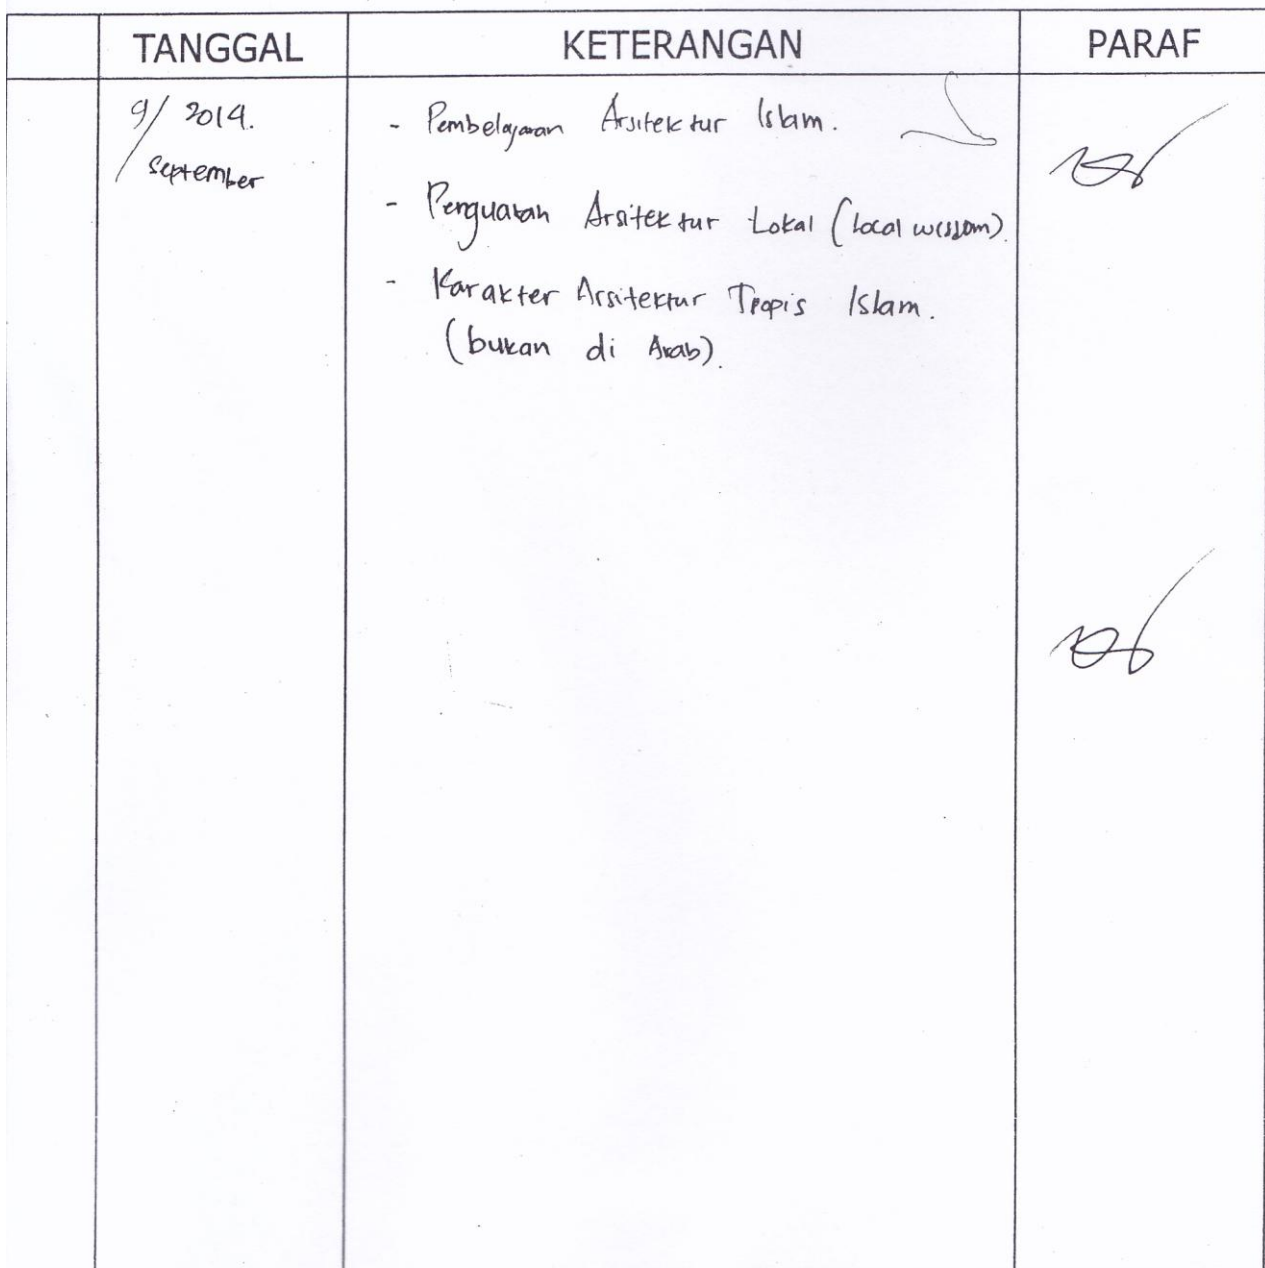 TANGGAL KETERANGAN PARAF
9/ 2014. - Pembelajaran Arsitektur Islam.
September
- Penguatan Arsitektur Lokal (local wisdom)
- Karakter Arsitektur Tropis Islam.
(bukan di Arab).